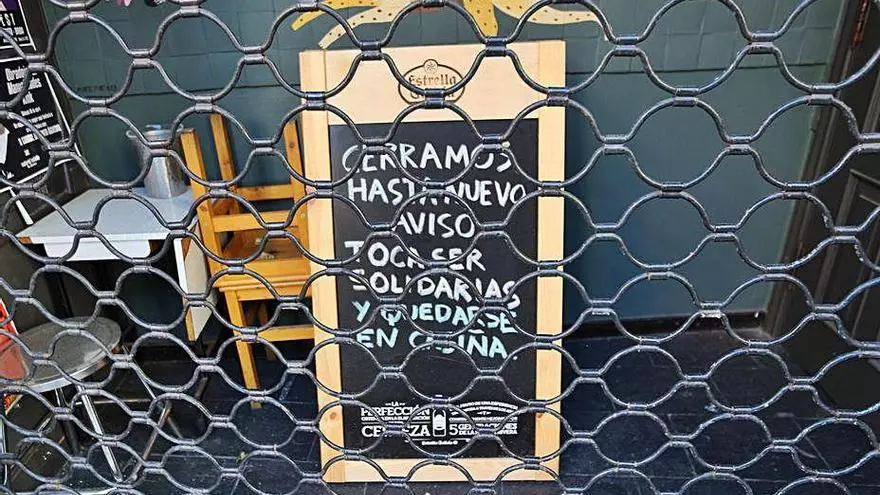 Estrella
CERRAMOS
HASTA NUEVO
AVISO
TOCA SER
SOLIDARIAS
Y QUEDARSE
EN CASIÑA
LA
PERFECCIÓN
CERVEZA
5 GENERACIONES